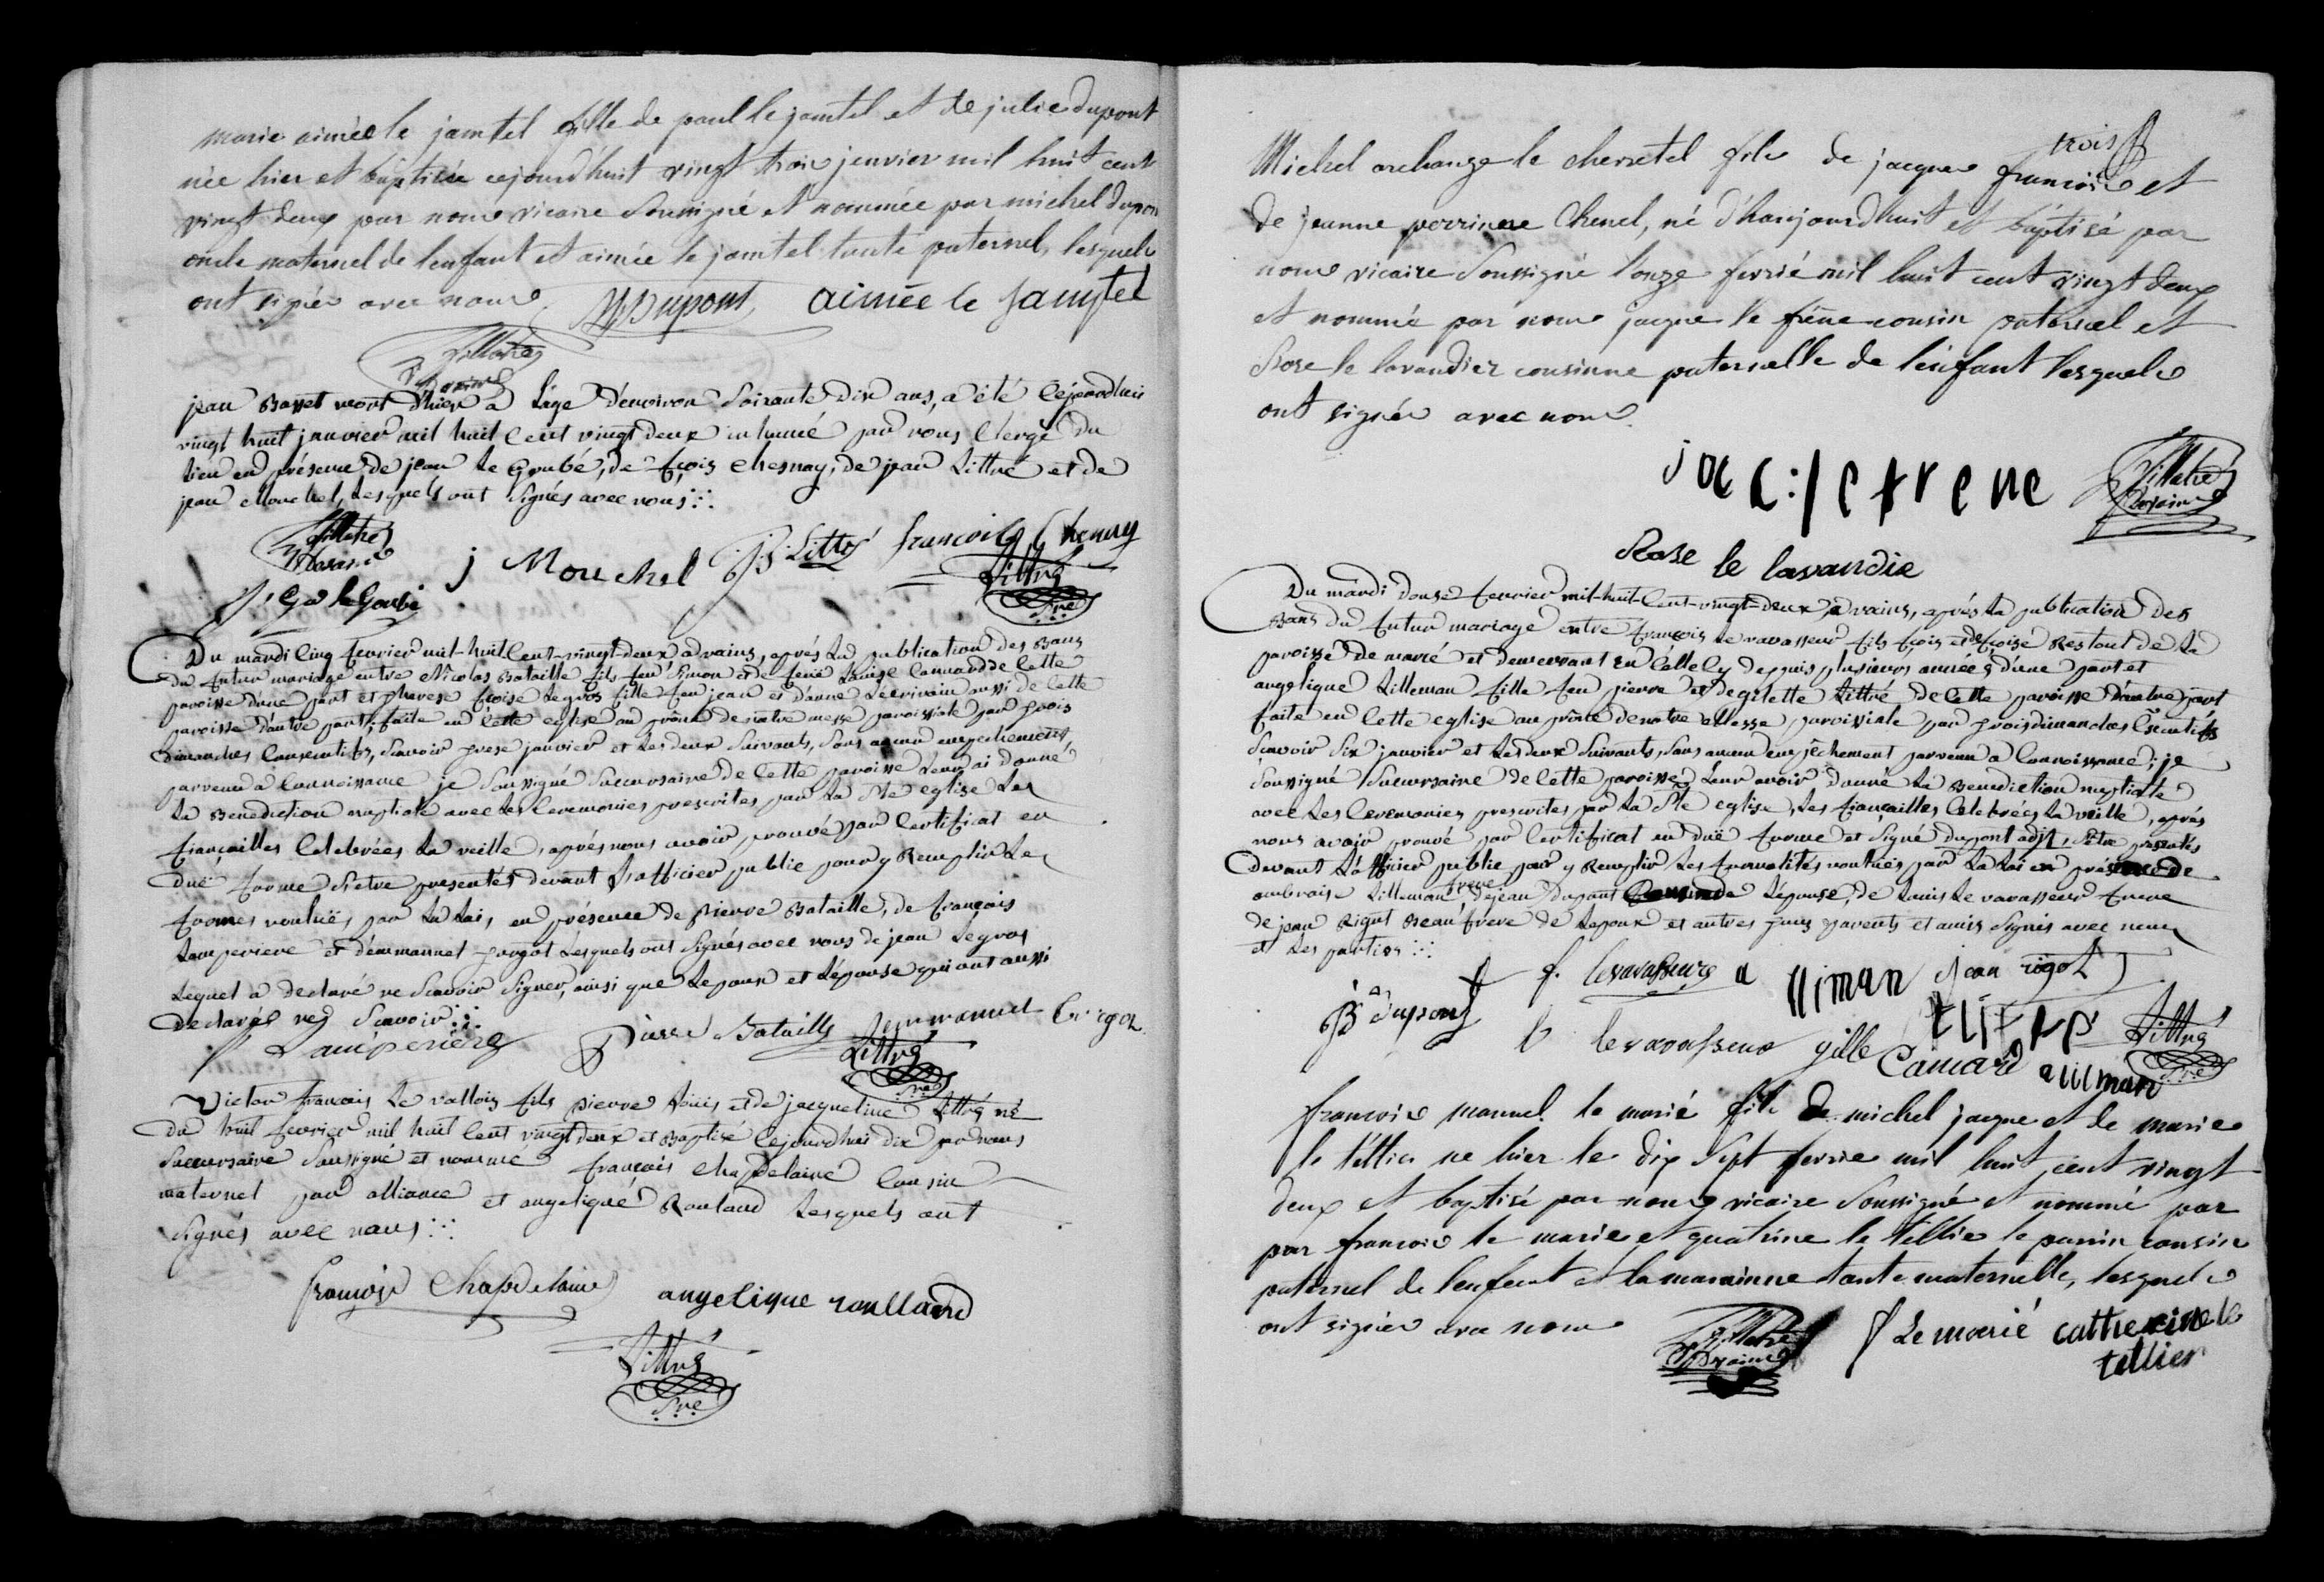 marie aimée le jamtel fille de paul le jamtel et de julie dupont
née hier et baptisée cejourd'huit vingt trois jenvier mil huit cent
vingt deux par nous vicaire soussigné et nommée par michel dupon
oncle maternel de lenfant et aimée le jamtel tante paternel, lesquels
ont signés avec nous. M Dupont aimée le jamtel
jean Basset mort d'hier à l'âge d'environ soixante dix ans, a été cejourdhui
vingt huit janvier mil huit cent vingt deux inhumé par nous clergé du
lieu en présence de jean le Goubé, de fçois chesnay, de jean Littré et de
jean Mouchel, lesquels ont signés avec nous
j Mouchel J: Littré francois Chenay
Littré
Sre
Du mardi cinq fevrier mil-huit-cent-vingt-deux à vains, après la publication des Bans
du futur mariage entre Nicolas Bataille fils feu simon et de feuë Louise Canard de cette
paroisse d'une part et therese fçoise Legros fille feu jean et d'anne Lecrivain aussi de cette
paroisse d'autre part; faite en cette eglise au prône de notre messe paroissiale par trois
dimanches consecutifs, sçavoir treze janvier et les deux suivants, sans aucun empechement
parvenu à connoissance je soussigné succursaire de cette paroisse leur ai donné
la Benediction nuptiale avec les ceremonies prescrites par la Ste eglise les
fiançailles celebrées la veille, après nous avoir prouvé par certificat en
duë forme s'etre presentés devant l'officier public pour y remplir les
formes vouluës par la loi, en présence de Pierre Bataille, de françois
Lamperiere et d'emmannel gorgot lesquels ont signés avec nous de jean Legros
lequel a declaré ne sçavoir signer, ainsi que l'epoux et l'épouse qui ont aussi
declarés ne sçavoir
Pierre Bataille
Littré
Sre
Victor francois le vallois fils pierre Louis et de jacqueline Littré né
du huit fevrier mil huit cent vingt deux et Baptisé cejourdhui dix par nous
succursaire soussigné et nommé françois chapdelaine cousin
maternel par alliance et angelique Roulaud lesquels ont
signés avec nous
françois Chapdelaine angelique roullaund
Littré
Sre
trois
Michel archange le cherretel fils de jacque francois et
de jeanne perrinne Chenel, né d'haujourdhuit et baptisé par
nous vicaire soussigné l'onze fevrié mil huit cent vingt deux
et nommé par nous jacque le frêne cousin paternel et
Rose le lavandier cousinne paternelle de lenfant lesquels
ont signés avec nous.
jac: lefrene
Rose le lavandie
Du mardi douse fevrier mil-huit-cent-vingt-deux à vains, après la publication des
Bans du futur mariage entre françois Le vavasseur fils fçois et de fçoise Restout de la
paroisse de marcé et demeurant en celle cy depuis plusieurs années d'une part et
angelique Lilleman fille feu pierre et de gilette Littré de cette paroisse d'autre part
faite en cette eglise au prône de notre Messe paroissiale par trois dimanches Csecutifs
sçavoir six janvier et les deux suivants, sans aucun empêchement parvenu à connoissance; je
soussigné succursaire de cette paroisse leur avoir donné la Benediction nuptiale
avec les ceremonies prescrites par la Ste eglise, les fiançailles celebrées la veille, après
nous avoir prouvé par certificat en duë forme et signé dupont adjt, s'etre presentés
devant l'officier public pour y remplir les formalités vouluës par la loi en présence de
ambroise Lilleman frere de jean dupont de l'épouse, de Louis Le vavasseur frere
de jean Rigot Beau frere de l'epoux et autres parents et amis signés avec nous
et les parties
f. levavasseur a liman jean rigot
JB dupont
l levavasseur gille Canard Littré
a lilman Sre
francois manuel le marié fils de michel jacque et de marie
le téllier ne hier le dix sept fevrie mil huit cent vingt
deux et baptisé par nous vicaire soussigné et nommé par
par francois le marie et quatrine le téllie le parrin cousin
paternel de lenfent et la marainne tante maternelle, lesquels
ont signés avec nous
f Le marié catherine le
tellier